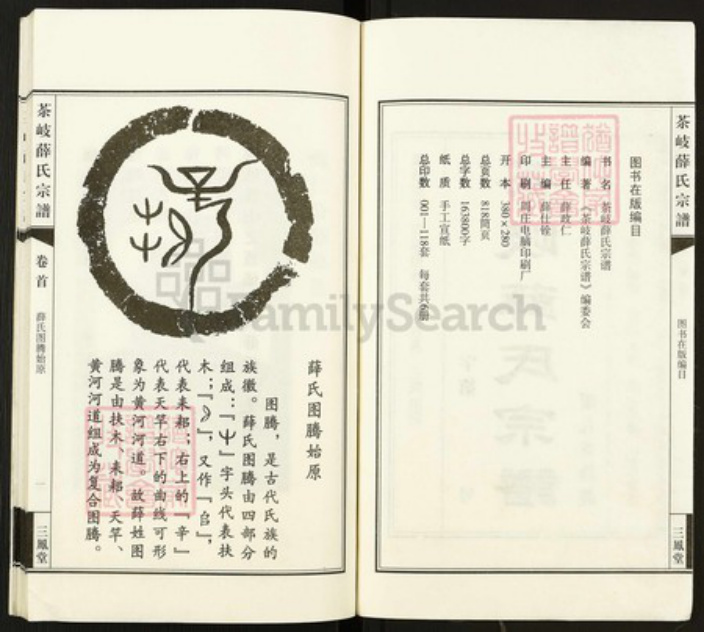 茶岐薛氏宗譜
图书在版编目
三鳳堂
图书在版编目
书 名 茶岐薛氏宗谱
编 著 《茶岐薛氏宗谱》编委会
主 任 薛政仁
主 编 薛仕铨
印 刷 周庄电脑印刷厂
开 本 380×280
总页数 818筒页
总字数 163800字
纸 质 手工宣纸
总印数 001—118套 每套共6册
薛氏图腾始原
图腾，是古代氏族的
族徽。薛氏图腾由四部分
组成：『屮』字头代表扶
木；『』，又作『㠯』，
代表耒耜；右上的『辛』
代表天竿右下的曲线可形
象为黄河河道。故薛姓图
腾是由扶木、耒耜、天竿、
黄河河道组成为复合图腾。
茶岐薛氏宗譜
卷首
薛氏图腾始原
一
三鳳堂
FamilySearch